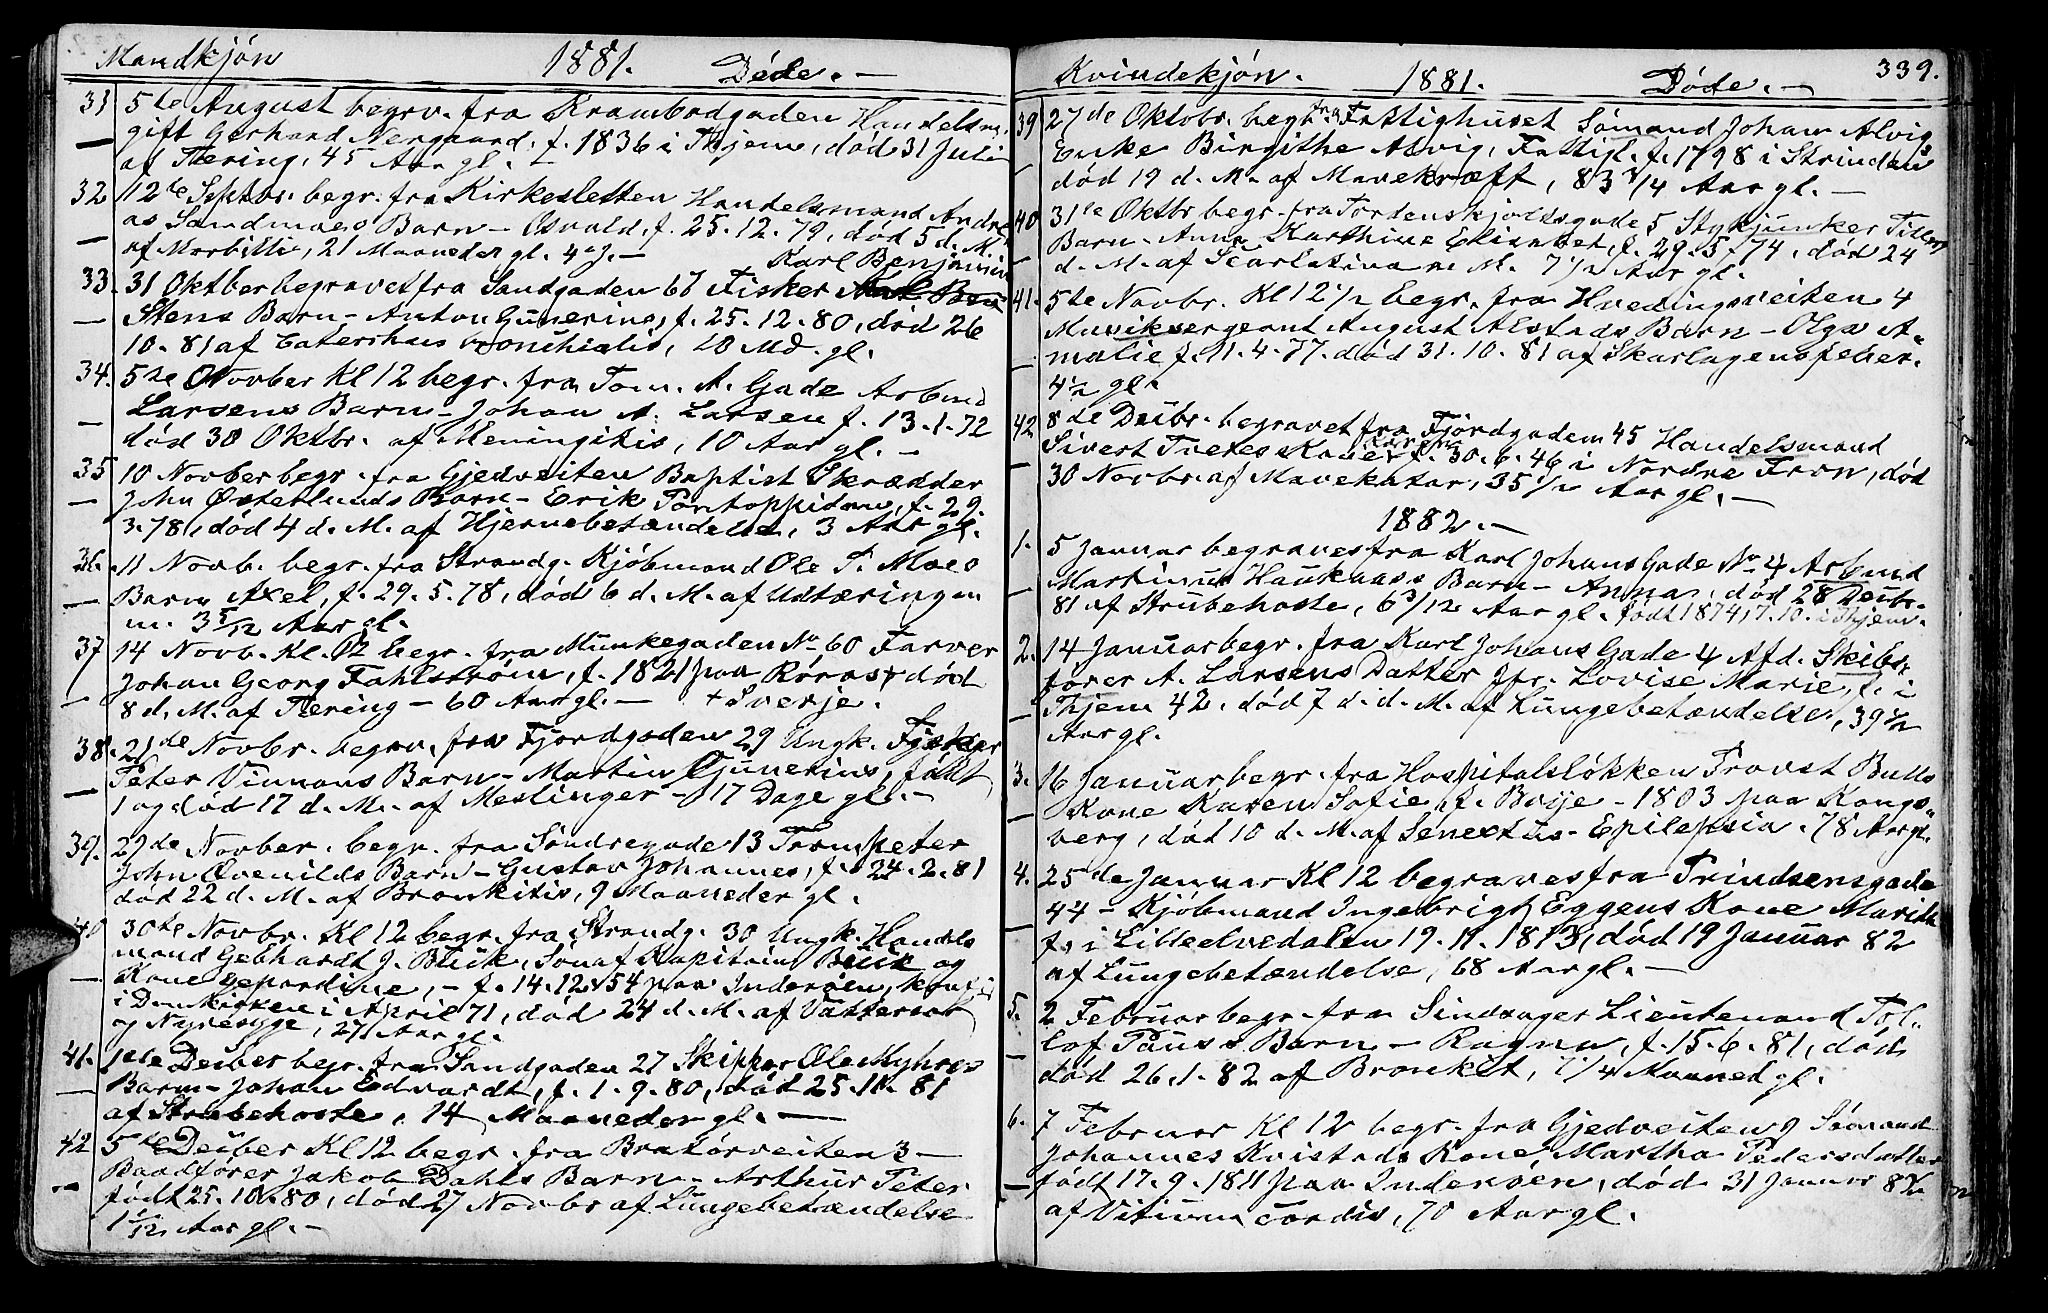 Mandkjón 1881. Døde. —
31 5te August begrv. fra Krambodgaden Handelsm.
— gift Gerhard Nergaard, f. 1836 i Thjem, død 31 Juli
af Tæring, 45 Aar gl. —
32 12te Septbr. begr. fra Kirkesletten Handelsmand Andre
as Sandmoes Barn — Osvald, f. 25.12.79, død 5 d. M.
— af Morbilli, 21 Maaneder gl. —
Karl Benjamin
33. 31 Oktber begravet fra Sandgaden 67 Fisker
— Stens Barn — Anton Gunerius, f. 25.12.80, død 26
10.81 af Catarrhus bronchialis, 10 Md. gl.
34. 5te Novber Kl 12 begr. fra Tom. A. Gade Arbmd
— Larsens Barn — Johan A. Larsen f. 13.1.72
død 30 Oktbr. af Meningitis, 10 Aar gl. —
35 10 Novber begr. fra Gjedveiten Baptist Skrædder
— John Østerlunds Barn — Erik Pontoppidan, f. 29.
3.78, død 4 d. M. af Hjernebetændelse, 3 Aar gl.
36. 11 Novb. begr. fra Strandg. Kjøbmand Ole T. Moes
— Barn Axel, f. 29.5.78, død 6 d. M. af Udtæring m
m. 3 5/12 Aar gl.
37 14 Novb. Kl. 12 begr. fra Munkegaden No 60 Farver
Johan Georg Fahlstrøm, f. 1821 paa Røros + død
— 8 d. M. af Tæring — 60 Aar gl. — + Sverje.
38. 21de Novbr. begrv. fra Fjordgaden 29 Ungk. Fisker
— Peter Vinnans Barn — Martin Gunerius, født
1 og død 17 d. M. af Meslinger — 17 Dage gl. —
39. 29de Novber. begr. fra Søndregade 13 Trompeter
— John Øvenilds Barn — Gustav Johannes, f. 24.2.81
død 22 d. M. af Bronkitis, 9 Maaneder gl.
40 30te Novbr. Kl 12 begr. fra Strandg. 30 Ungk. Handels
mand Gebhardt J. Buck, Søn af Kapitain Buck og
— Kone Gepardine, — f. 14.12.54 paa Inderøen, konf.
i Domkirken i April 71, død 24 d. M. af Vattersot
og Nyresyge, 27 Aar gl.
41. 1ste Deiber begr. fra Sandgaden 27 Skipper Ole Myhres
— Barn — Johan Edvardt, f. 1.9.80, død 25.11.81
af Strubehoste, 14 Maaneder gl. —
42 5te Deiber Kl 12 begr. fra Bratørveiten 3 —
Baadfører Jakob Dahls Barn — Arthur Peter
— født 25.10.80, død 27 Novbr af Lungebetændelse
1 1/12 Aar gl. —
Kvindekjón. 1881. Døde. — 339.
39 27de Oktobr. begr. fra Fattighuset Sømand Johan Alvigs
Enke Birgithe Alvig, Fattigl. f. 1798 i Strinden
— død 19 d. M. af Mavekræft, 83 1/4 Aar gl. —
40 31te Oktbr begr. fra Tordenskjoldsgade 5 Stykjunker Tillers
— Barn — Anna Karthine Elisabet, f. 29.5.74, død 24
d. M. af Scarlatina m. M. 7 1/2 Aar gl.
41. 5te Novbr. Kl 12 1/2 begr. fra Hvedingsveiten 4
Musiksergeant August Alstads Barn — Olga A-
— malie f. 11.4.77. død 31.10.81 af Skarlagensfeber.
4 1/2 gl.
42 8de Deibr. begravet fra Fjordgaden 45 Handelsmand
Sivert Tretes Kone Karen f. 30.6.46 i Nordre Fron, død
— 30 Novbr. af Mavekatar, 35 1/2 Aar gl. —
1882. —
1. 5 Januar begraves fra Karl Johans Gade No 4 Arbmd
— Martinus Haukaas's Barn — Anna, død 28 Deibr.
81 af Strubehoste, 6 3/12 Aar gl. født 1874 17.10. i Thjem.
2. 14 Januar begr. fra Karl Johans Gade 4 Afd. Skibs-
fører A. Larsens Datter Jfr. Lovise Marie, f. i
— Thjem 42, død 7 d. d. M. af Lungebetændelse, 39 1/2
Aar gl.
3. 16 Januar begr. fra Hospitalsløkken Provst Bulls
— Kone Karen Sofie, f. Boije — 1803 paa Kongs-
berg, død 10 d. M. af Senectus — Epilepsia. 78 Aar gl.
4. 25de Januar Kl 12 begraves fra Prindsensgade
44 — Kjøbmand Ingebrigt Eggens Kone Marith
— f. i Lilleelvedalen 19.11.1813, død 19 Januar 82
af Lungebetændelse, 68 Aar gl. —
5. 2 Februar begr. fra Sindsager Lieutenand Tol-
lof Paus's Barn — Ragna, f. 15.6.81, død
— død 26.1.82 af Bronkit, 7 1/4 Maaned gl.
6. 7 Februar Kl 12 begr. fra Gjedveiten 9 Sømand
Johannes Kvistads Kone, Martha Pedersdatter
— født 17.9.1811 paa Inderøen, død 31 Januar 82
af Vitium cordis, 70 Aar gl.